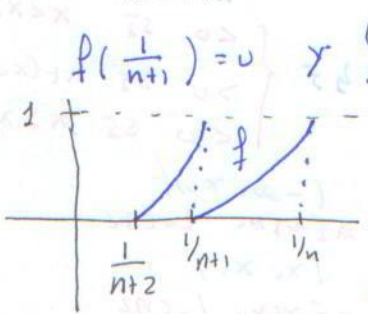 f(1/(n+1)) = 0 y
1
f
1/(n+2) 1/n+1 1/n